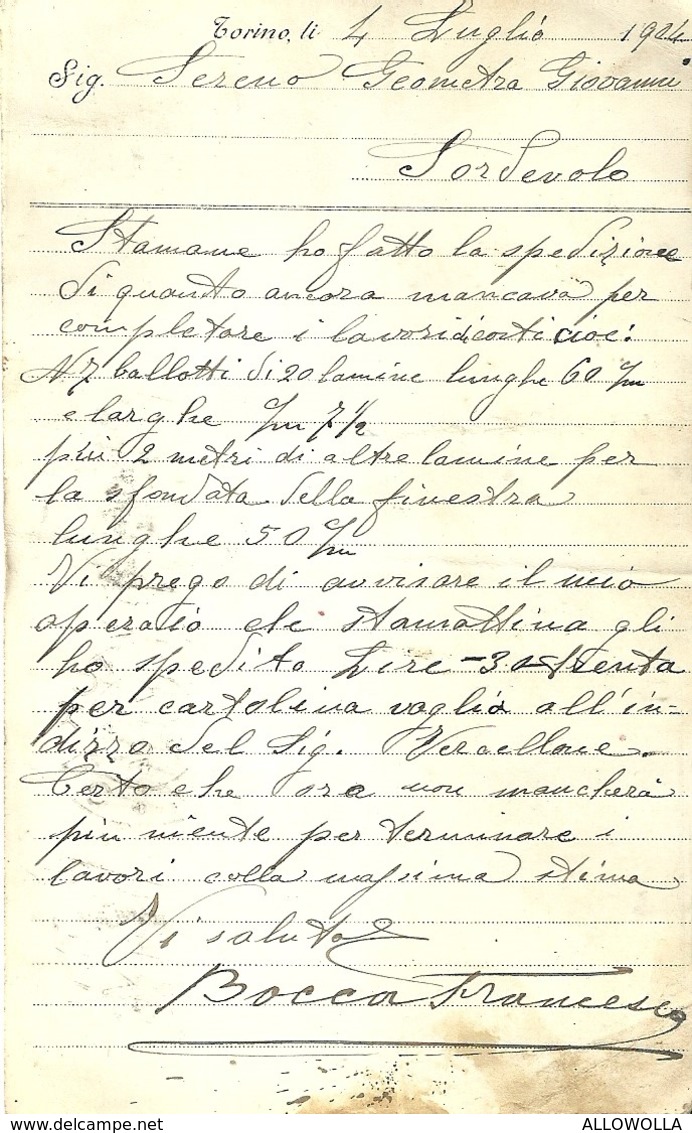 Torino, li 4 Luglio 1924
Sig. Sereno Geometra Giovanni
Sordevolo
Stamane ho fatto la spedizione
di quanto ancora mancava per
completare i lavori costi cioe:
N 7 ballotti di 20 lamine lunghe 60 c/m
e larghe c/m 7 1/2
più 2 metri di altre lamine per
la sfondata della finestra
lunghe 50 c/m
Vi prego di avvisare il mio
operaio che stamattina gli
ho spedito Lire -30- trenta
per cartolina vaglia all'in-
dirzzo del Sig. Vercellone.
Certo che ora non mancherà
più niente per terminare i
lavori colla massima stima
Vi saluto
Bocca Francesco
ALLOWOLLA